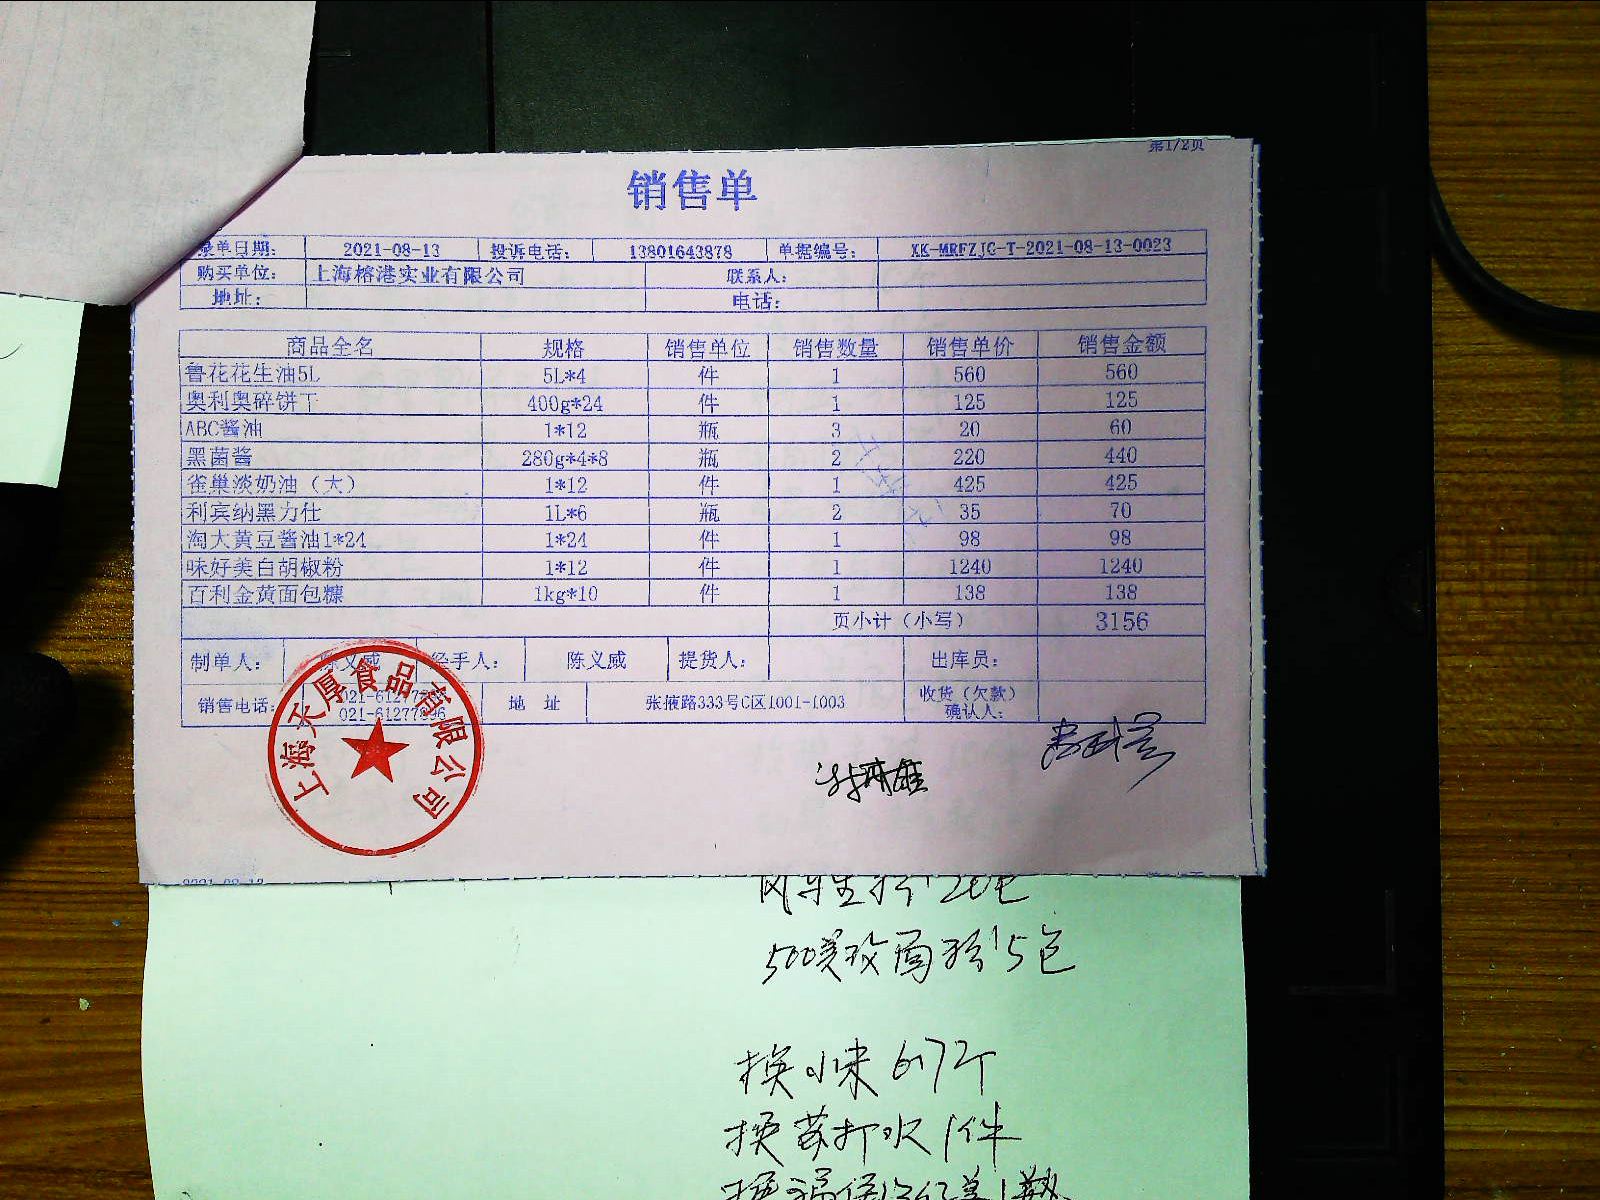 第1/2页
销售单
录单日期： 2021-08-13 投诉电话： 13801643878 单据编号： XK-MRFZJC-T-2021-08-13-0023
购买单位： 上海榕港实业有限公司 联系人：
地址： 电话：
商品全名 规格 销售单位 销售数量 销售单价 销售金额
鲁花花生油5L 5L*4 件 1 560 560
奥利奥碎饼干 400g*24 件 1 125 125
ABC酱油 1*12 瓶 3 20 60
黑菌酱 280g*4*8 瓶 2 220 440
雀巢淡奶油（大） 1*12 件 1 425 425
利宾纳黑力仕 1L*6 瓶 2 35 70
淘大黄豆酱油1*24 1*24 件 1 98 98
味好美白胡椒粉 1*12 件 1 1240 1240
百利金黄面包糠 1kg*10 件 1 138 138
页小计（小写） 3156
制单人： 陈义威 经手人： 陈义威 提货人： 出库员：
销售电话： 021-61277796 地 址 张掖路333号C区1001-1003 收货（欠款）
021-61277896 确认人：
上海天厚食品有限公司
2021-08-13
20包
500美玫面粉15包
换小米 6172个
换苏打水1件